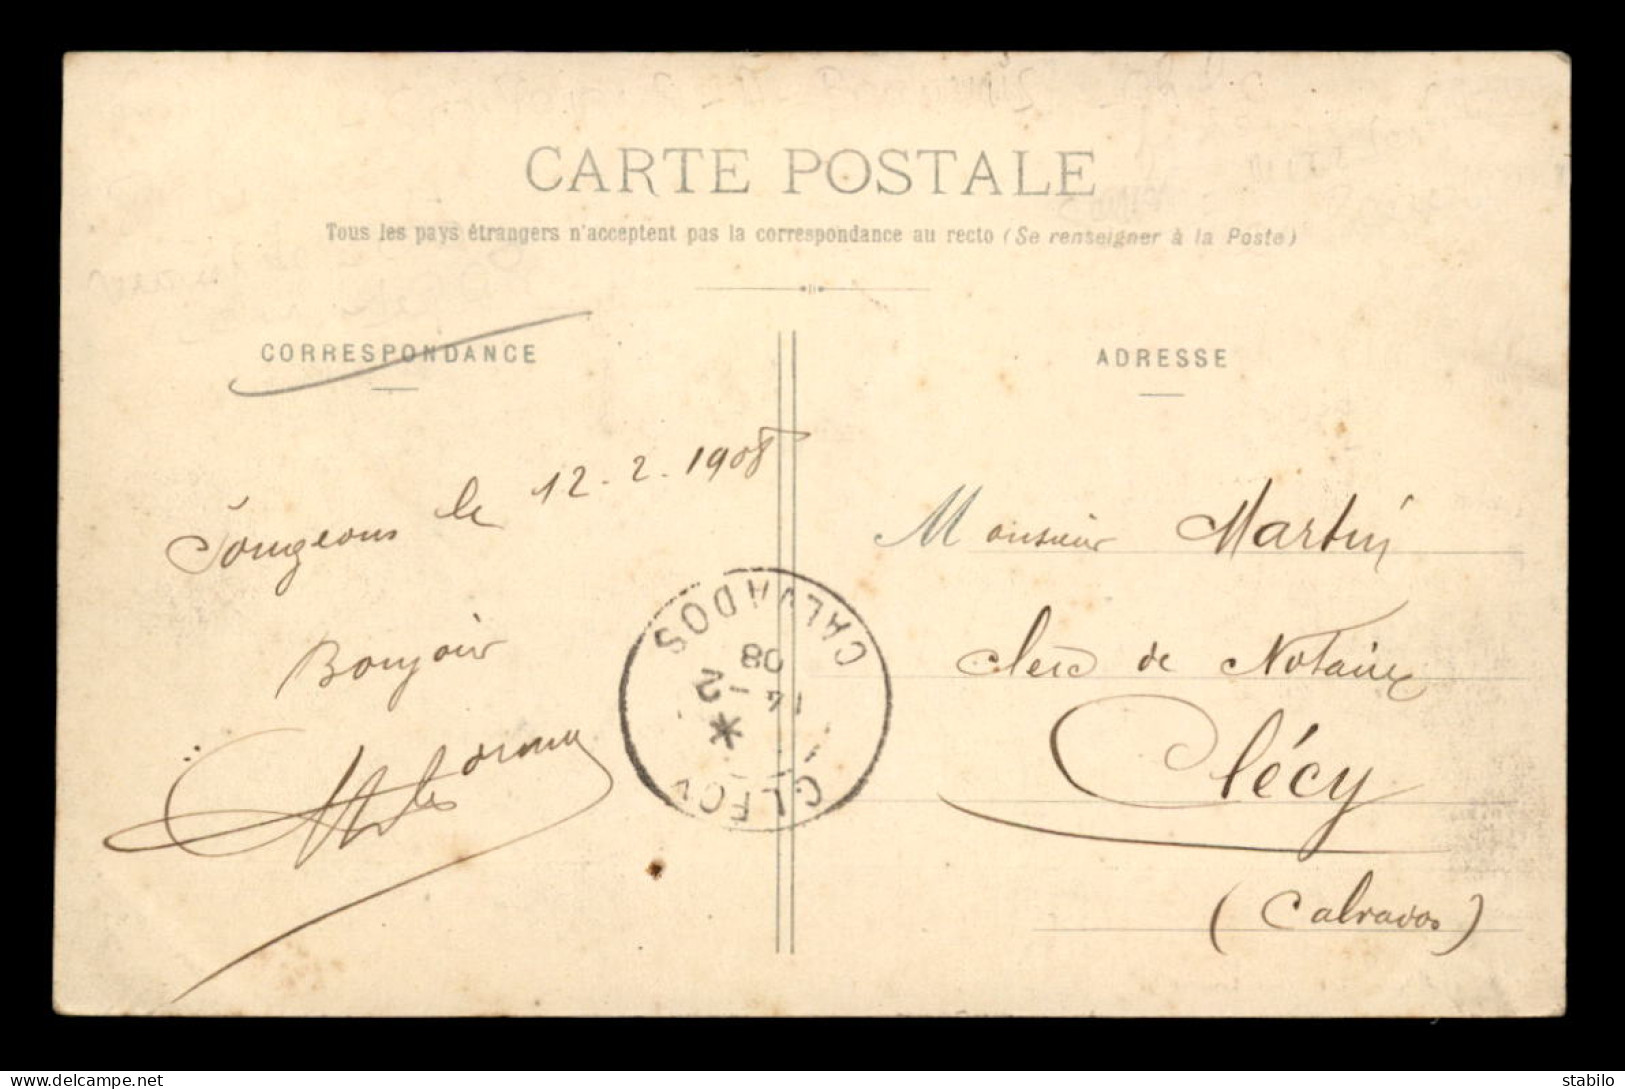 CARTE POSTALE
Tous les pays étrangers n'acceptent pas la correspondance au recto (Se renseigner à la Poste)
CORRESPONDANCE
ADRESSE
Songeons le 12-2-1908
Bonjour
Monsieur Martin
clerc de Notaire
Clécy
(Calvados)
CALVADOS
14 - 2
08
*
CLECY
delcampe.net
stabilo